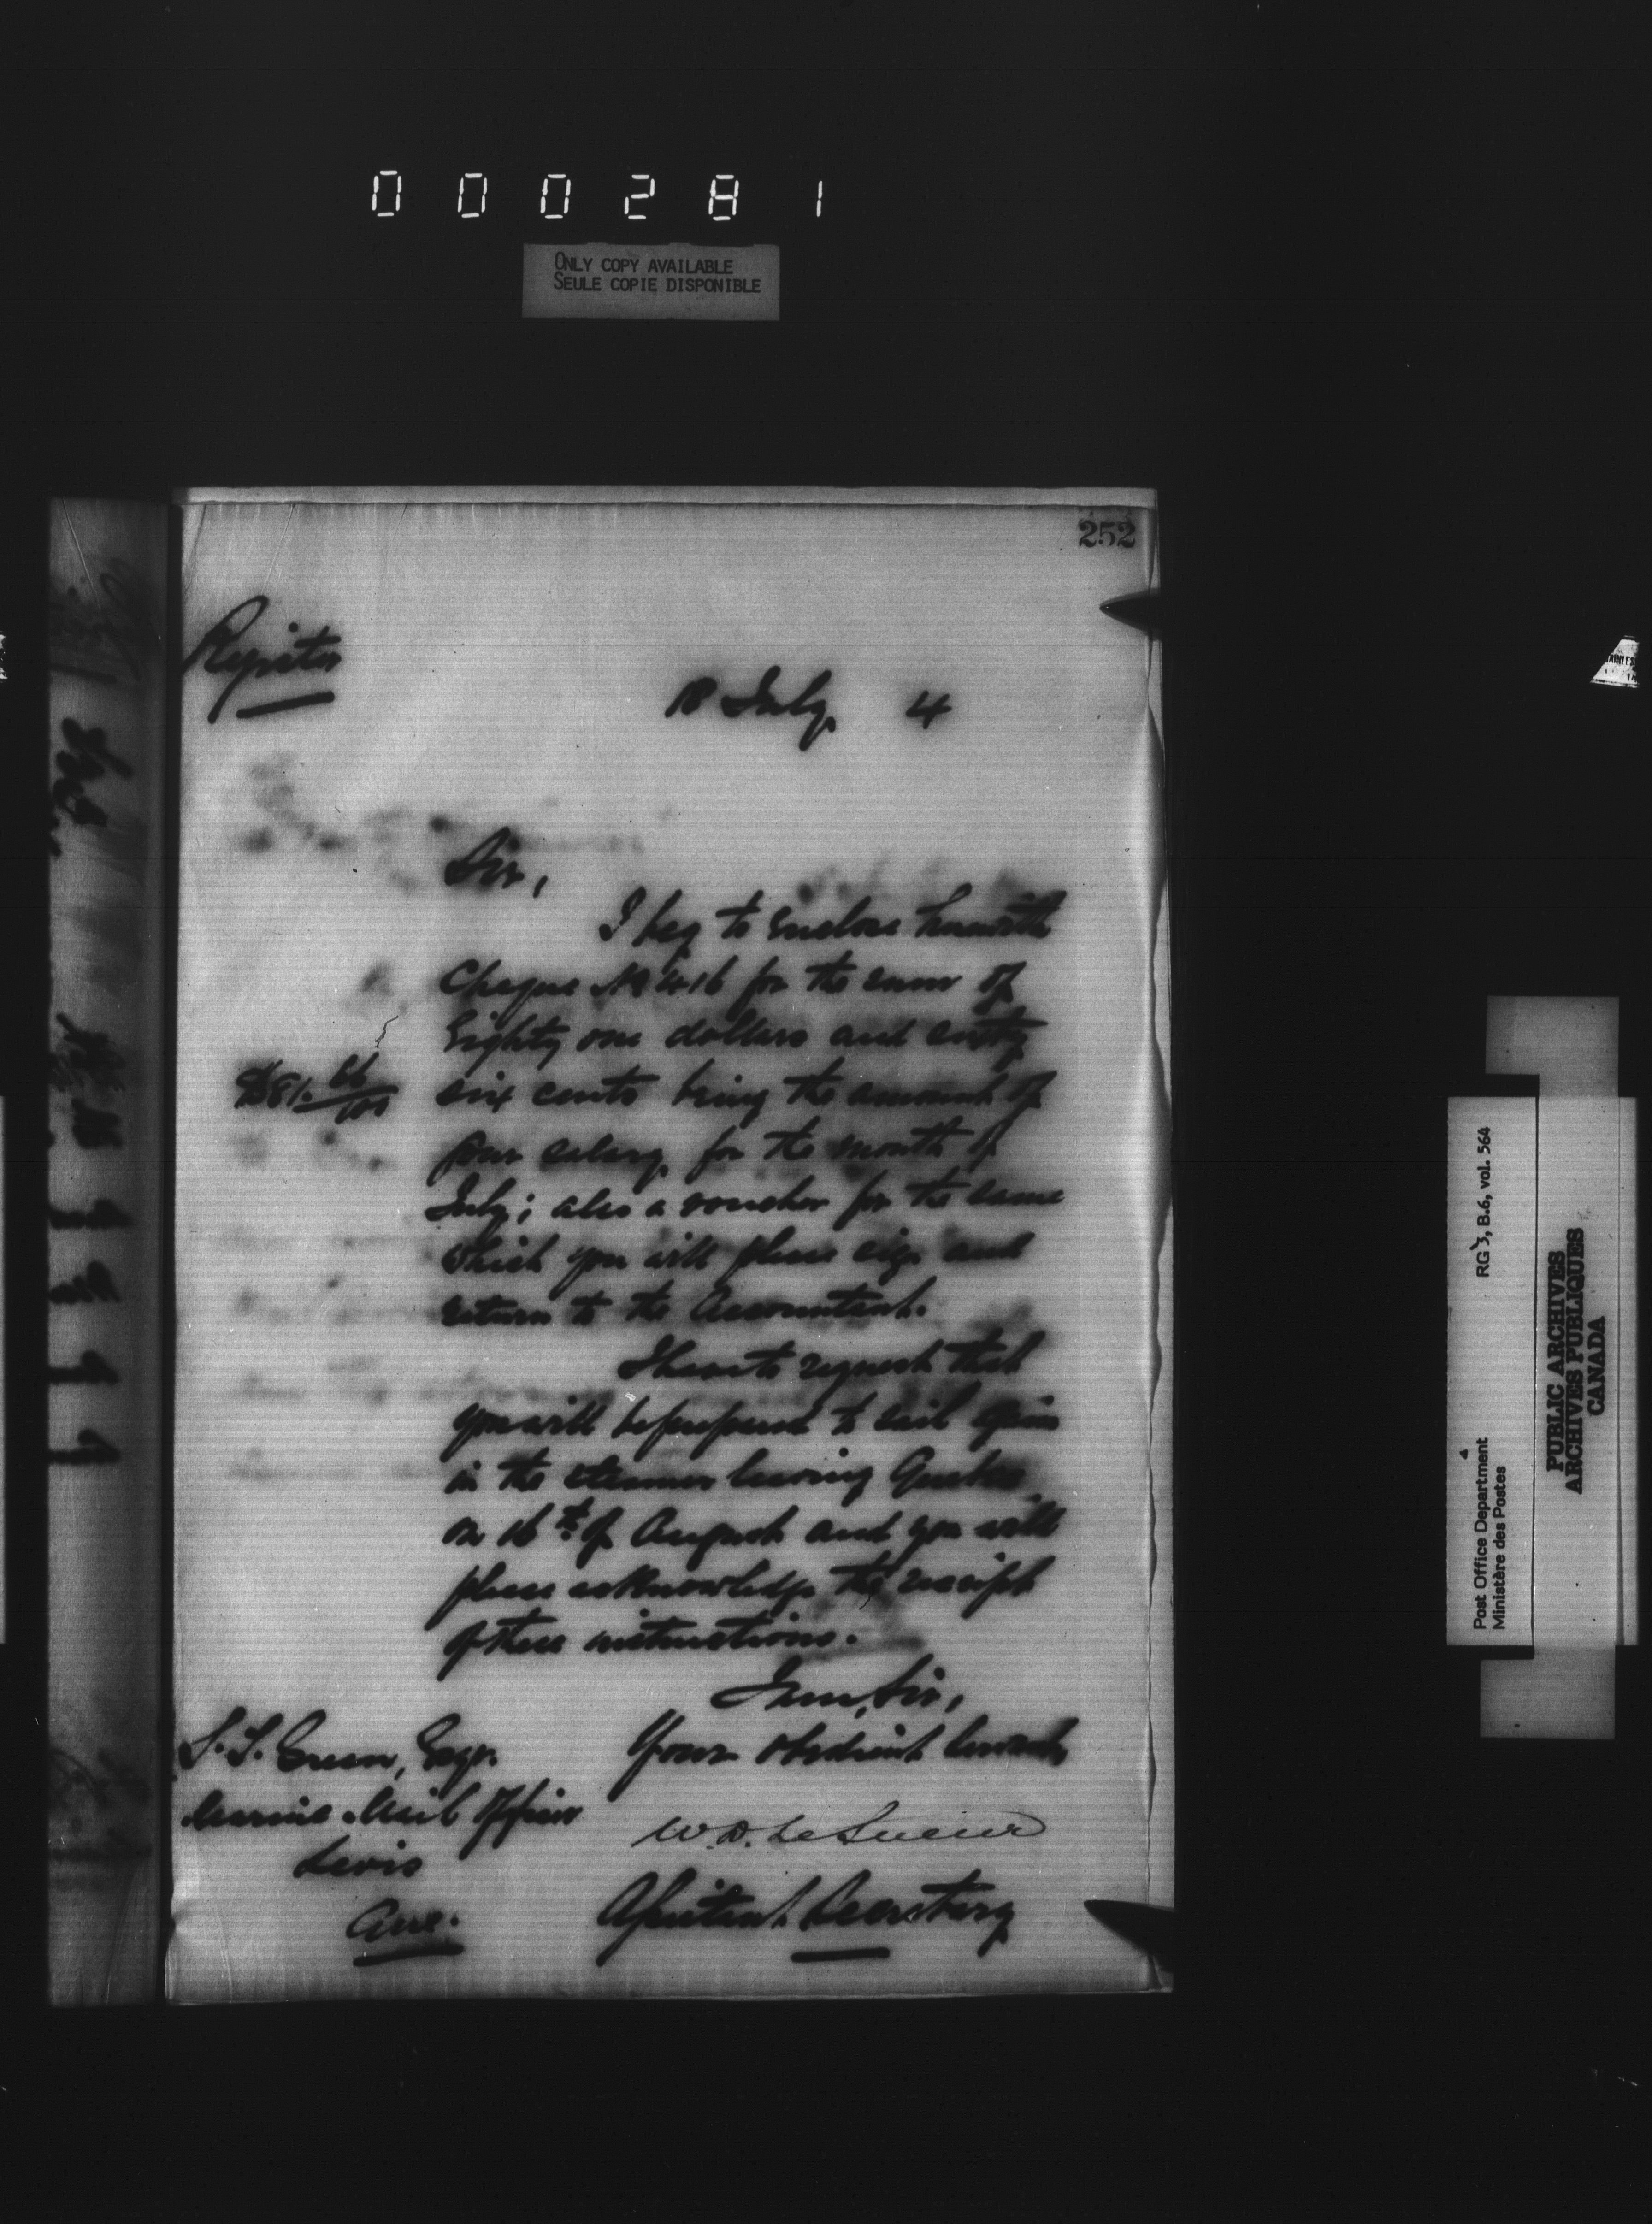 000281
ONLY COPY AVAILABLE
SEULE COPIE DISPONIBLE
252
Register
18 July 4
Sir,
I beg to enclose herewith
Cheque No 416 for the sum of
Eighty one dollars and sixty
$81. 66/100
six cents being the amount of
your salary for the month of
July; also a voucher for the same
which you will please sign and
return to the Accountant.
I have to request that
you will be prepared to sail again
in the steamer leaving Quebec
on 16th of August and you will
please acknowledge the receipt
of these instructions.
I am, Sir,
Your obedient Servant
S. S. Green, Esqr.
W. D. LeSueur
Marine Mail Officer
Levis
Assistant Secretary
RG 3, B.6, vol. 564
Post Office Department
Ministère des Postes
PUBLIC ARCHIVES
ARCHIVES PUBLIQUES
CANADA